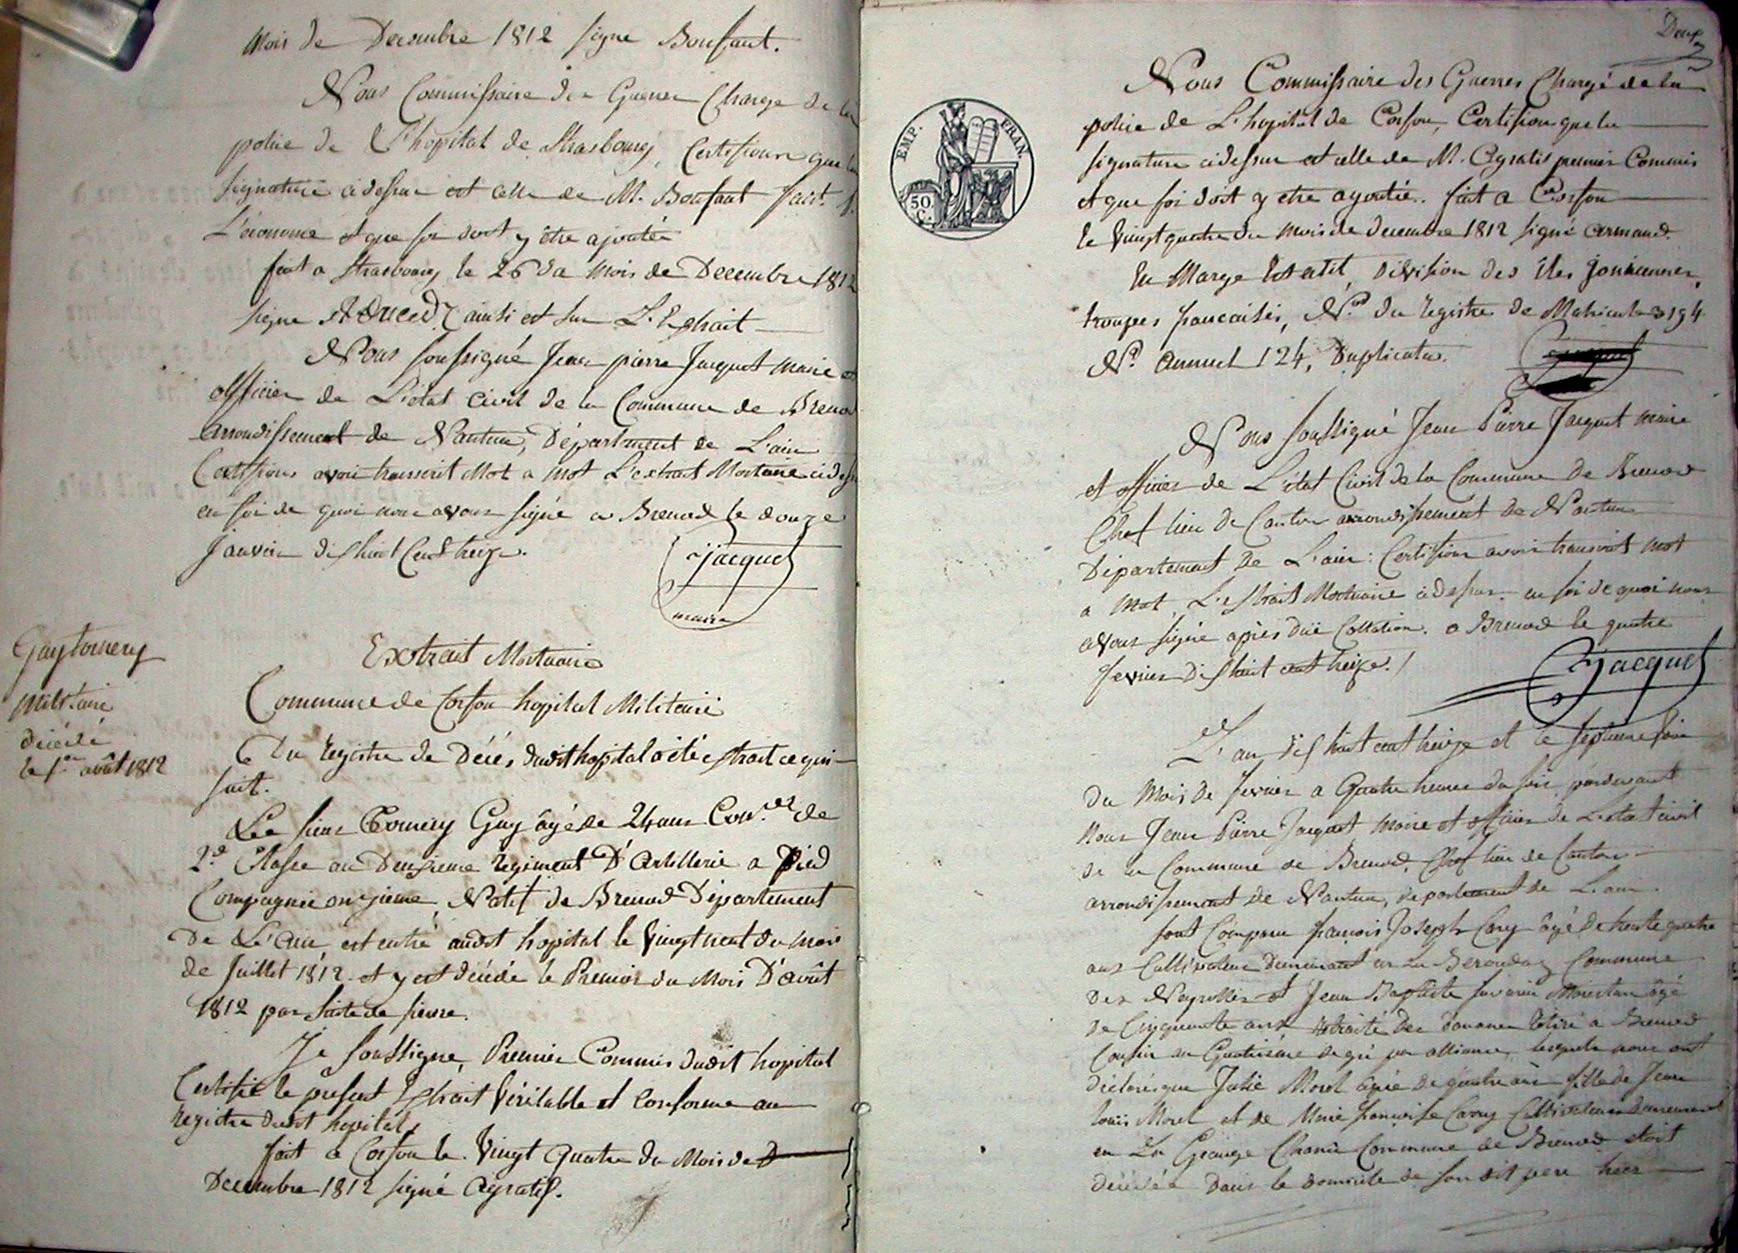 mois de Decembre 1812 signé Bonfant.
Nous Commissaire des Guerres Chargé de la
police de L'hôpital de Strasbourg, Certifions que la
signature cidessus est celle de M. Bonfant fait. f.
L'économe et que foi doit y être ajoutée
fait a Strasbourg le 26 du mois de Decembre 1812
signé ainsi est sur L'Extrait
Nous soussigné Jean pierre Jacquet maire et
officier de L'état Civil de la Commune de Brenod
arrondissement de Nantua, Département de L'ain
Certifions avoir transcrit Mot a mot L'extrait Mortuaire cidessus
en foi de quoi nous avons signé a Brenod le douze
Janvier dix huit Cent treize.
Jacquet
maire
Guy tomery
militaire
décédé
le 1er août 1812
Extrait Mortuaire
Commune de Corfou hopital Militaire
Du Registre de Décès dudit hopital a été extrait ce qui
suit.
Le sieur Tomery Guy âgé de 24 ans Con.er de
2.e Classe au Deuxieme regiment D'artillerie a pied
Compagnie onzieme, Natif de Brenod Département
De L'ain est entré audit hopital le Vingt neuf du mois
de Juillet 1812 et y est décédé le Premier du Mois D'août
1812 par suite de fievre.
Je soussigné, Premier Commis dudit hopital
Certifie le présent Extrait Véritable et conforme au
registre dudit hopital,
fait a Corfou le Vingt Quatre du Mois de D
Decembre 1812 signé Agratis.
Deux
EMP. FRAN.
50
C.
Nous Commissaire des Guerres Chargé de la
police de L'hopital de Corfou, Certifions que la
signature cidessus est celle de M. Agratis premier Commis
et que foi doit y etre ajoutée. fait a Corfou
le Vingt quatre du mois de decembre 1812 signé armand.
En Marge Est ecrit, Division des îles joniennes,
troupes françaises, N.º du registre de Matricule 3194
N.º annuel 124, Duplicata.
Nous soussigné Jean Pierre Jacquet maire
et officier de L'état Civil de la Commune de Brenod
Chef lieu de Canton arrondissement de Nantua
Département de L'ain: Certifions avoir transcrit mot
a mot L'Extrait Mortuaire cidessus. en foi de quoi nous
avons signé après due Collation. a Brenod le quatre
fevrier Dix huit cent treize./
Jacquet
L'an dix huit cent treize et le septieme jour
du Mois de fevrier a Quatre heures du soir, pardevant
Nous Jean Pierre Jacquet Maire et officier de L'état civil
de la Commune de Brenod, Chef lieu de Canton
arrondissement de Nantua, departement de L'ain.
sont Comparus françois Joseph Cary âgé de trente quatre
ans Cultivateur Demeurant en La Commune
Des Neyrolles et Jean Baptiste Savarin âgé
de Cinquante ans retraité des douanes retiré a Brenod
Cousin au Quatrieme degré par alliance, lesquels nous ont
déclaré que Julie Morel âgée de quatre ans fille de Jean
Louis Morel et de Marie françoise Carry Cultivateurs demeurant
en La Grange Commune de Brenod etoit
décédée Dans le domicile de son dit pere hier